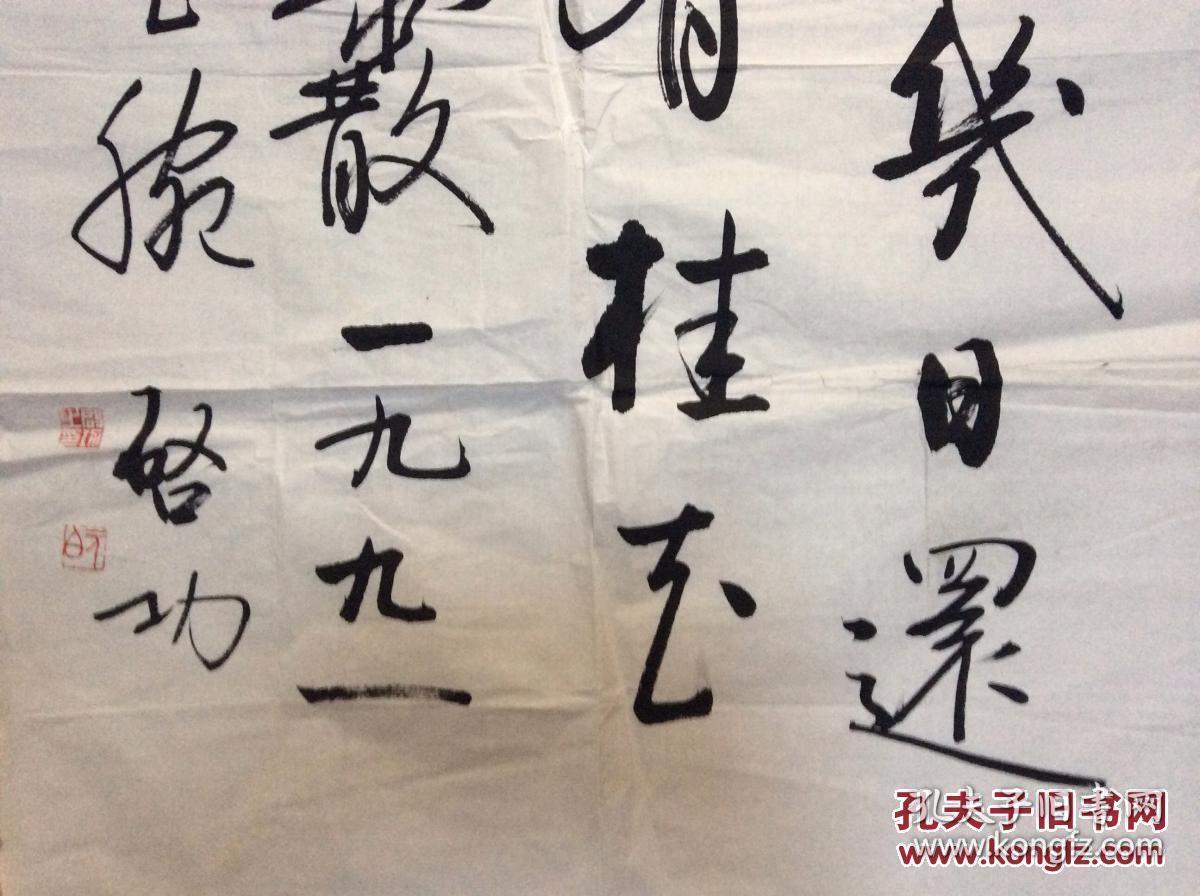 幾日還
有桂花
散一九九一
腕啓功
孔夫子旧书网
www.kongfz.com